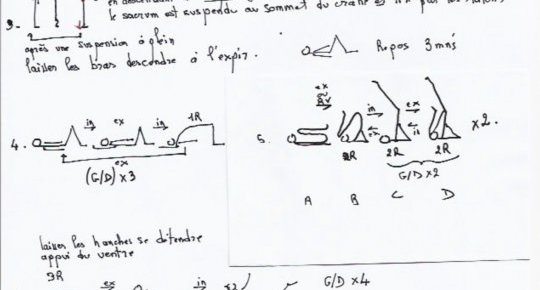 3.
en descendant
le sacrum est suspendu au sommet du crane et non par les
après une suspension à plein
laisser les bras descendre à l'expir.
Repos 3 mns
4. in ex in 1R
ex
(G/D) x3
5. ex in ex x2.
RV ex in
2R 2R 2R
G/D x2
A B C D
laisser les hanches se détendre
appui du ventre
3R
ex in x2 G/D x4